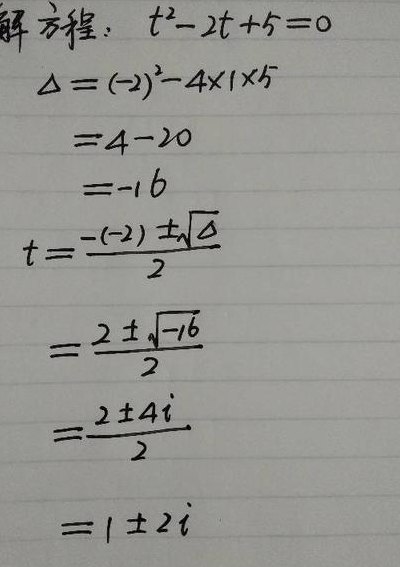 解方程： t²-2t+5=0
Δ=(-2)²-4×1×5
=4-20
=-16
t=\frac{-(-2)±\sqrt{Δ}}{2}
=\frac{2±\sqrt{-16}}{2}
=\frac{2±4i}{2}
=1±2i